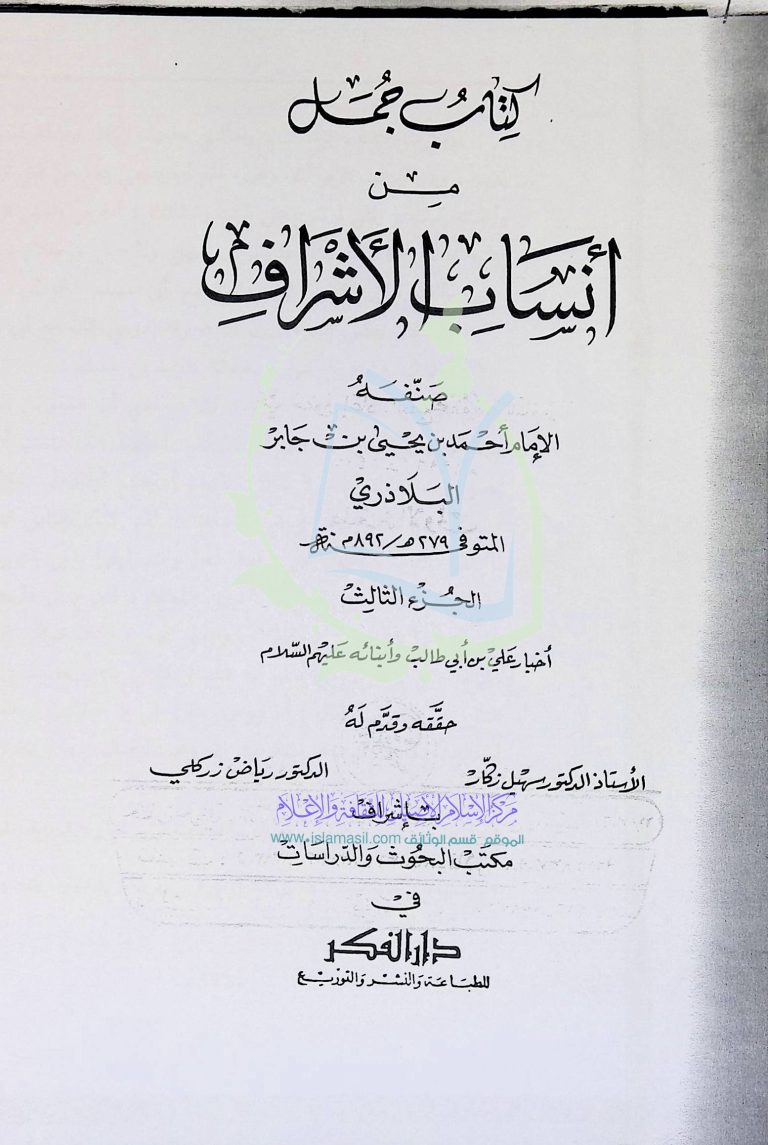 كِتَابُ جُمَل
مِن
أَنْسَابِ الأَشْرَافِ
صَنَّفَهُ
الإمَام أَحْمَد بن يَحْيىٰ بن جَابِر
البَلَاذري
المتوفى سنة ٢٧٩هـ/٨٩٢م
الجُزء الثَالِث
أخبار علي بن أبي طالب وأبنائه عليهم السّلام
حقّقه وقدّم لَهُ
الأستاذ الدكتور سهيل زكّار الدكتور رياض زركلي
بإشراف
مركز الإسلام الأصيل للثقافة والإعلام
www.islamasil.com الموقع - قسم الوثائق
مكتب البحُوث وَالدّراسَات
في
دار الفكر
للطبَاعَة وَالنّشر وَالتوزيع